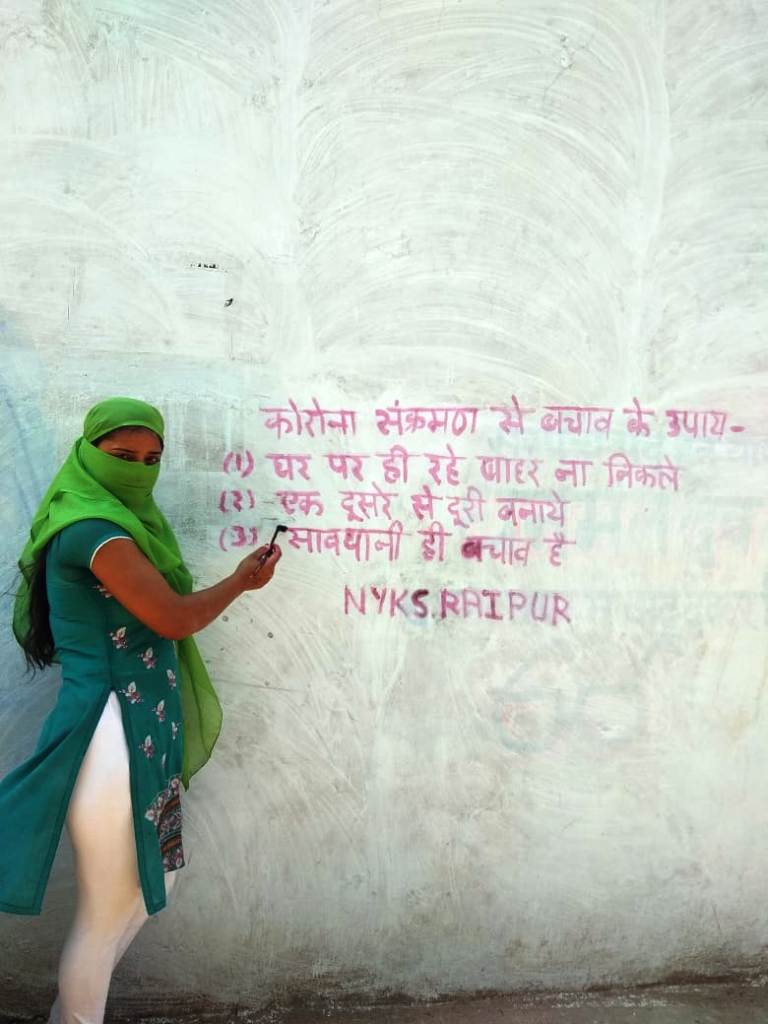 कोरोना संक्रमण से बचाव के उपाय-
(१) घर पर ही रहे बाहर ना निकले
(२) एक दूसरे से दूरी बनाये
(३) सावधानी ही बचाव है
NYKS.RAIPUR